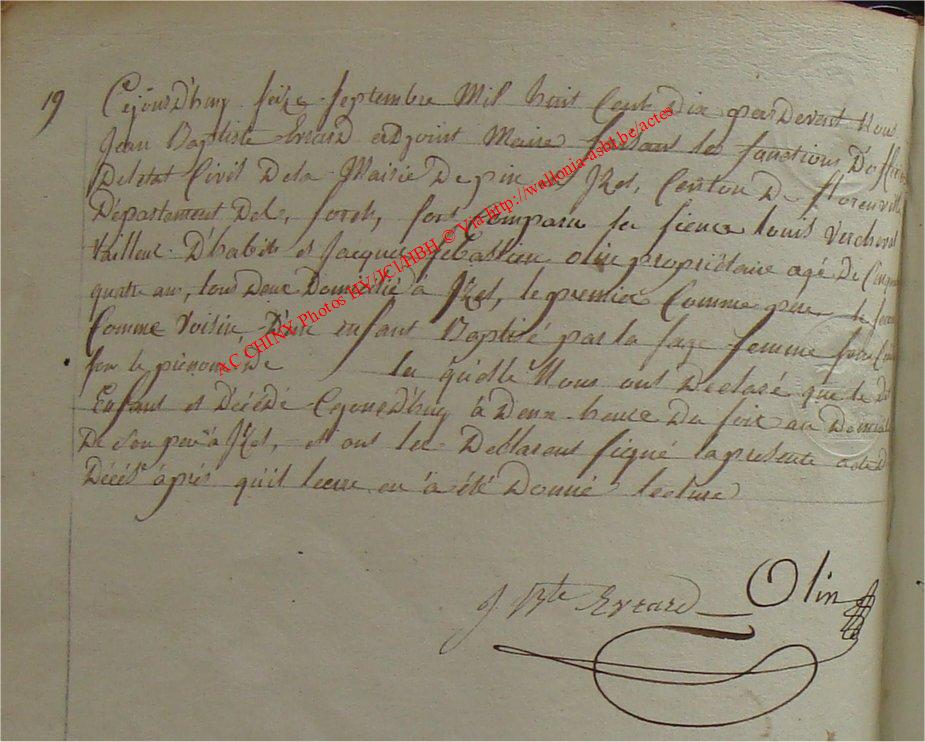 19
Cejourd'huy seize septembre Mil huit Cent Dix pardevent Nous
Jean Baptiste Evrard adjoint Maire faisant les fonctions D'officier
Deletat Civil Dela Mairie De pin et Izel, Canton De florenville
Departement Des forets, sont comparu les sieurs louis vercheval
tailleur D'habits et Jacques sebastien olin propriétaire agé De Cinqu
quatre ans, tous Deux Domicilié à Izel, le premier Comme pere le second
Comme Voisin D'un enfant Baptisé par la sage femme
sou le prénom De les quelle Nous ont Declaré que le Dit
Enfant et Décédé Cejourd'huy à Deux heure Du soir au Domicile
De son pere à Izel, et ont les Déclarant signé la presente acte D
Décés après qu'il leur en à été Donné lecture
J Bte Evrard Olin
AC CHINY Photos HV/JCl/HBH © Via http://wallonia-asbl.be/actes